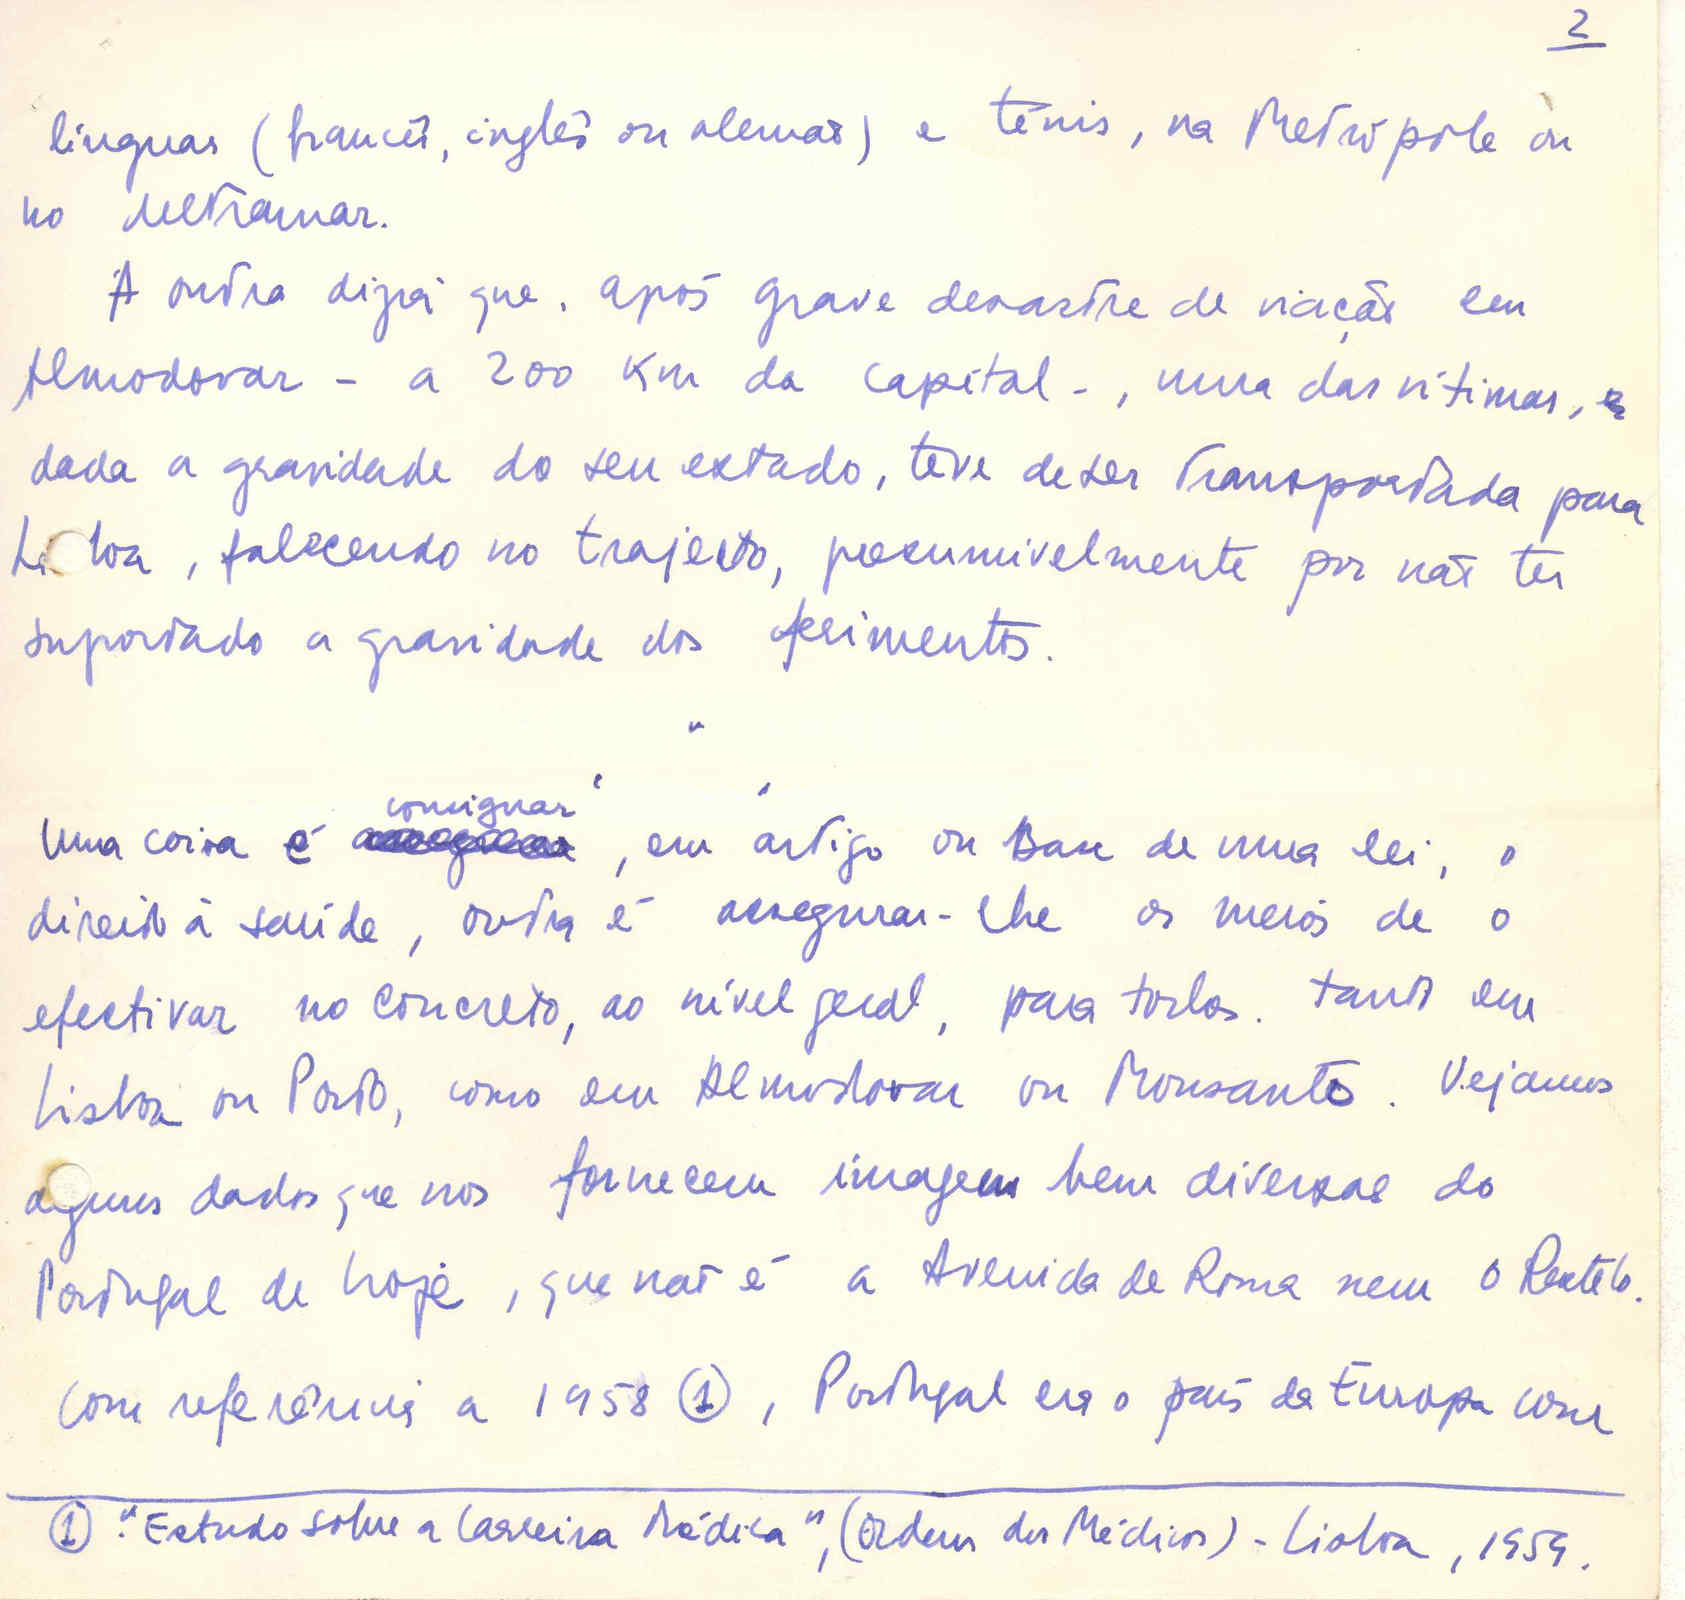 2
línguas (francês, inglês ou alemão) e ténis, na Metrópole ou
no Ultramar.
A outra dizia que, após grave desastre de viação em
Almodovar - a 200 Km da capital -, uma das vítimas,
dada a gravidade do seu estado, teve de ser transportada para
Lisboa, falecendo no trajecto, presumivelmente por não ter
suportado a gravidade dos ferimentos.
"
consignar
Uma coisa é , em artigo ou Base de uma lei, o
direito à saúde, outra é assegurar-lhe os meios de o
efectivar no concreto, ao nível geral, para todos. Tanto em
Lisboa ou Porto, como em Almodovar ou Monsanto. Vejamos
alguns dados que nos fornecem imagem bem diversas do
Portugal de hoje, que não é a Avenida de Roma nem o Restelo.
Com referência a 1958 ①, Portugal era o país da Europa com
① "Estudo sobre a Carreira Médica", (Ordem dos Médicos) - Lisboa, 1959.